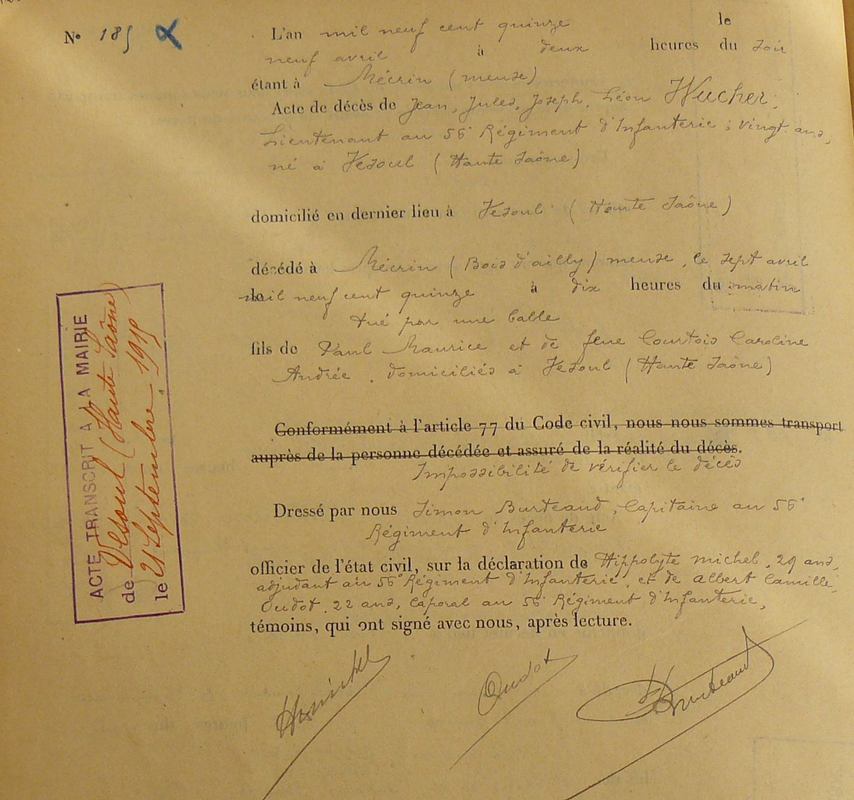 N° 185
L'an mil neuf cent quinze le
neuf avril à deux heures du soir
étant à Mécrin (meuse)
Acte de décès de Jean, Jules, Joseph, Léon Wucher,
Lieutenant au 56e Régiment d'Infanterie; vingt ans,
né à Vesoul (Haute Saône)
domicilié en dernier lieu à Vesoul (Haute Saône)
décédé à Mécrin (Bois d'ailly) meuse, le sept avril
mil neuf cent quinze à dix heures du matin
tué par une balle
fils de Paul Maurice et de feue Courtois Caroline
Andrée, domiciliés à Vesoul (Haute Saône)
Conformément à l'article 77 du Code civil, nous nous sommes transport
auprès de la personne décédée et assuré de la réalité du décès.
Impossibilité de vérifier le décès
Dressé par nous Simon Burteaud, Capitaine au 56e
Régiment d'Infanterie
officier de l'état civil, sur la déclaration de Hippolyte michel, 29 ans,
adjudant au 56e Régiment d'Infanterie, et de Albert Camille
Oudot, 22 ans, caporal au 56e Régiment d'Infanterie,
témoins, qui ont signé avec nous, après lecture.
Hmichel Oudot Burteaud
ACTE TRANSCRIT A LA MAIRIE
de Vesoul (Haute Saône)
le 21 Septembre 1915